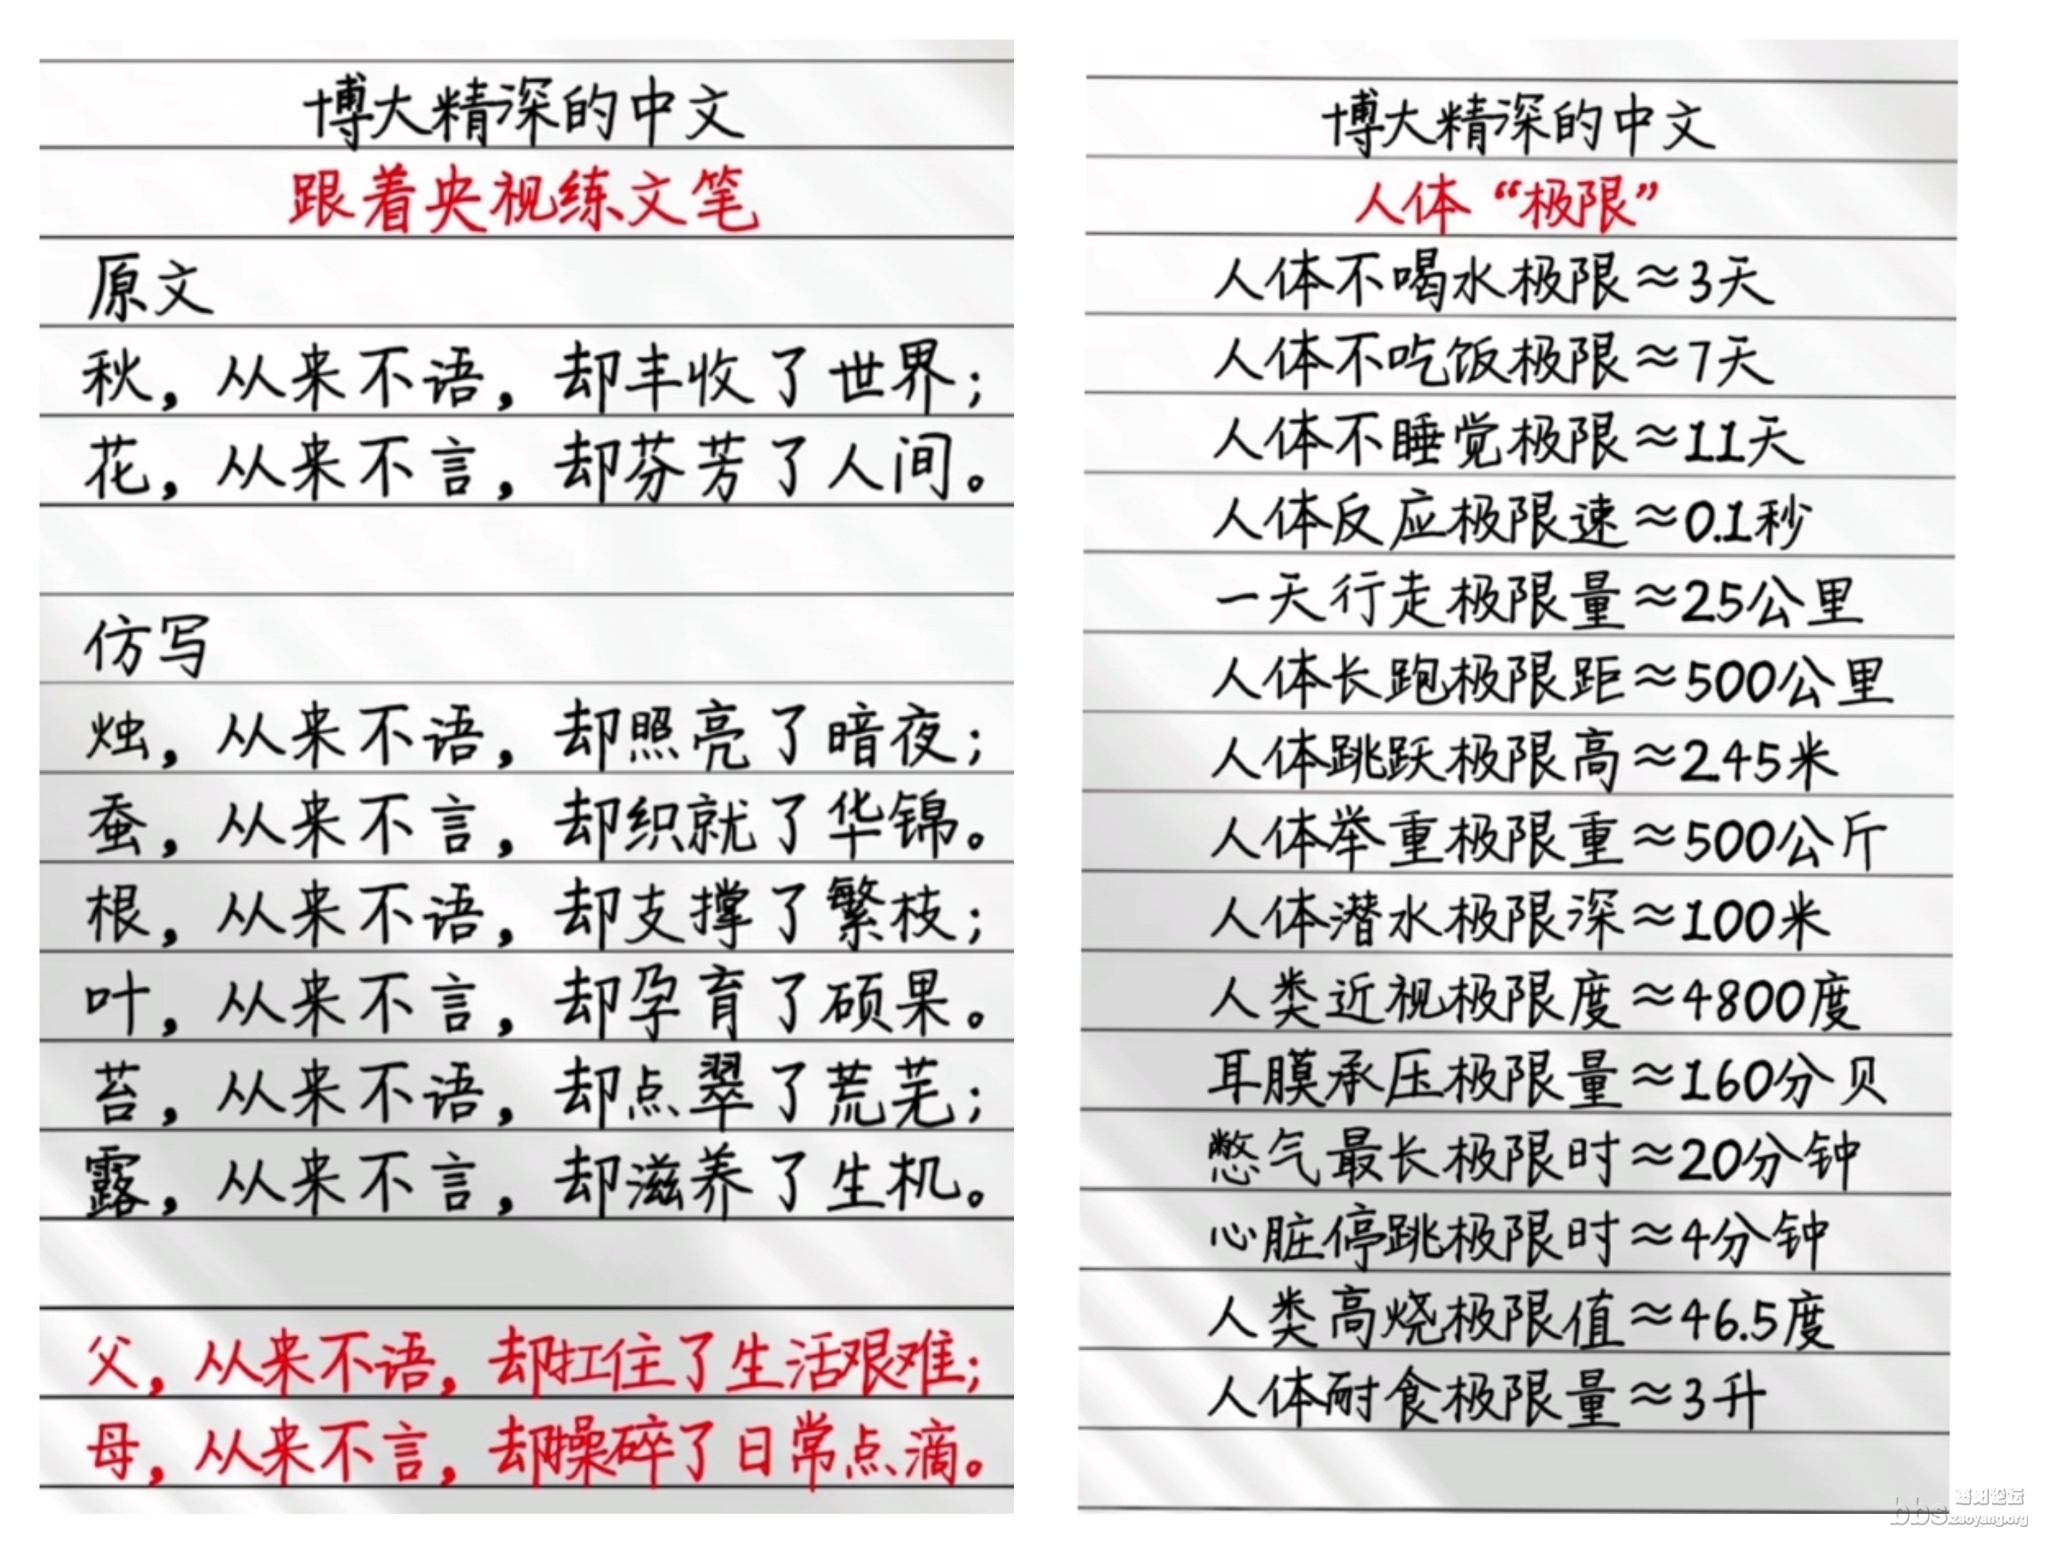 博大精深的中文
跟着央视练文笔
原文
秋，从来不语，却丰收了世界；
花，从来不言，却芬芳了人间。
仿写
烛，从来不语，却照亮了暗夜；
蚕，从来不言，却织就了华锦。
根，从来不语，却支撑了繁枝；
叶，从来不言，却孕育了硕果。
苔，从来不语，却点翠了荒芜；
露，从来不言，却滋养了生机。
父，从来不语，却扛住了生活艰难；
母，从来不言，却操碎了日常点滴。
博大精深的中文
人体“极限”
人体不喝水极限≈3天
人体不吃饭极限≈7天
人体不睡觉极限≈11天
人体反应极限速≈0.1秒
一天行走极限量≈25公里
人体长跑极限距≈500公里
人体跳跃极限高≈2.45米
人体举重极限重≈500公斤
人体潜水极限深≈100米
人类近视极限度≈4800度
耳膜承压极限量≈160分贝
憋气最长极限时≈20分钟
心脏停跳极限时≈4分钟
人类高烧极限值≈46.5度
人体耐食极限量≈3升
bbs.zaoyang.org